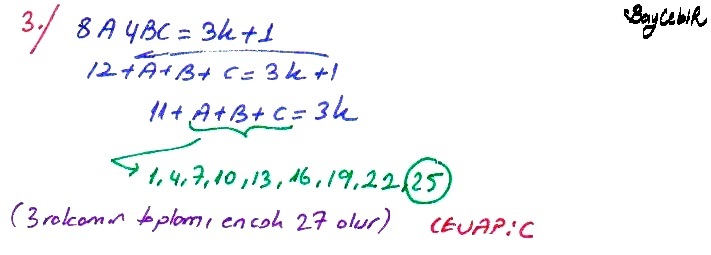 BayCebiR
3./ 8A4BC = 3k+1
12+A+B+C = 3k+1
11+A+B+C = 3k
1,4,7,10,13,16,19,22,25
(3 rakamın toplamı en çok 27 olur) CEVAP:C